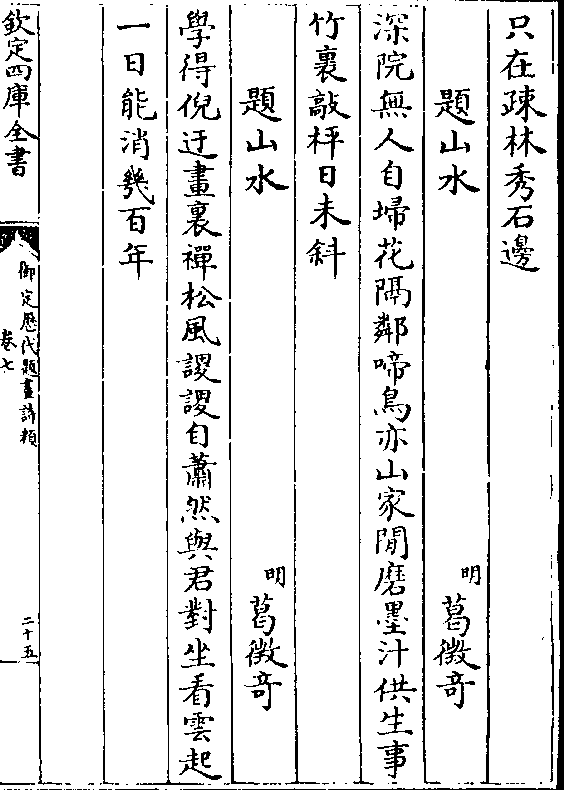 只在疎林秀石邊
題山水　明　葛徵奇
深院無人自埽花隔鄰啼鳥亦山家閒磨墨汁供生事
竹裏敲枰日未斜
題山水　明　葛徵奇
學得倪迂畫裏禪松風謖謖自蕭然與君對坐看雲起
一日能消幾百年
欽定四庫全書
御定歷代題畫詩類
卷七
二十五